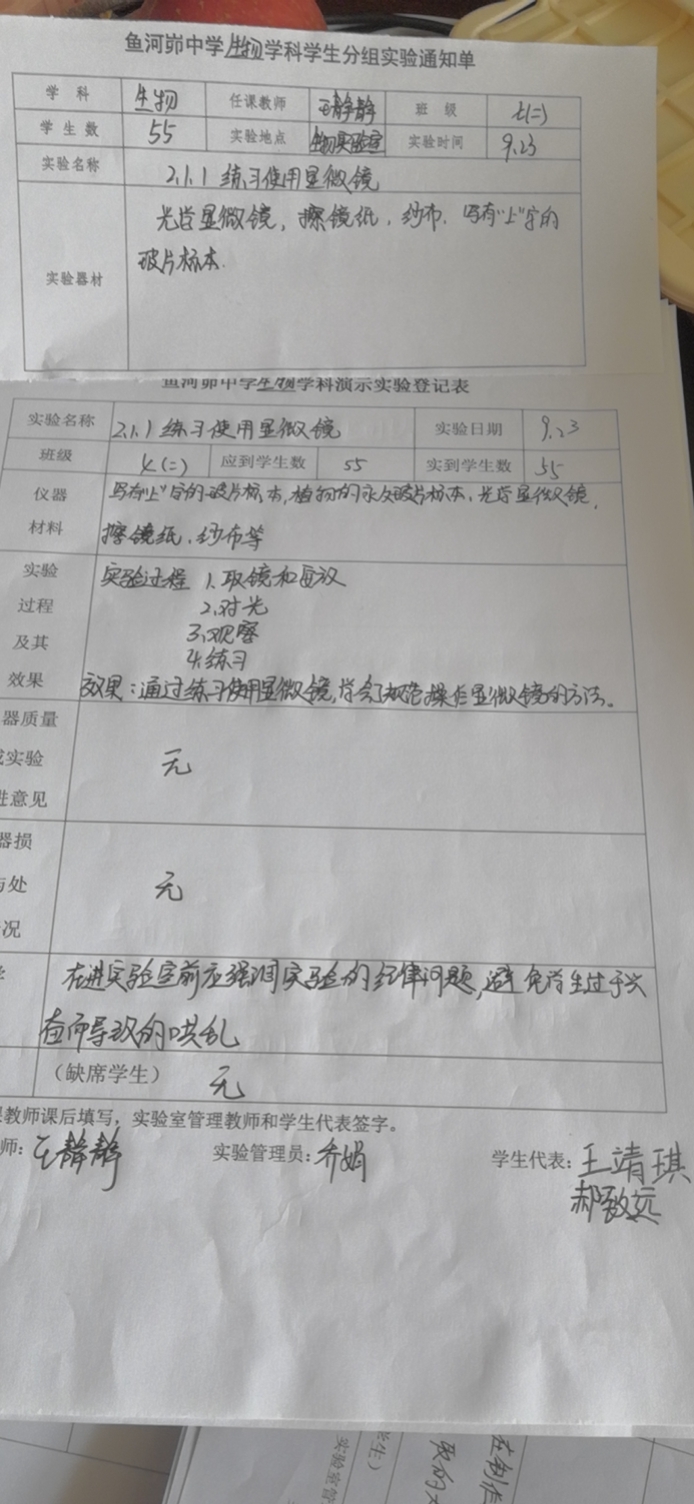 鱼河峁中学生物学科学生分组实验通知单
学 科 生物 任课教师 王静静 班 级 七(二)
学生数 55 实验地点 生物实验室 实验时间 9.23
实验名称 2.1.1 练习使用显微镜
实验器材 光学显微镜，擦镜纸，纱布，写有"上"字的
玻片标本.
鱼河峁中学生物学科演示实验登记表
实验名称 2.1.1 练习使用显微镜 实验日期 9.23
班级 七(二) 应到学生数 55 实到学生数 55
仪器 写有"上"字的玻片标本,植物的永久玻片标本,光学显微镜,
材料 擦镜纸、纱布等
实验 实验过程 1.取镜和安放
过程 2.对光
及其 3.观察
4.练习
效果 效果：通过练习使用显微镜,学会了规范操作显微镜的方法。
器质量
实验 无
意见
器损
与处 无
况
在进实验室前应强调实验的纪律问题,避免学生过于兴
奋而导致的哄乱
（缺席学生） 无
教师课后填写，实验室管理教师和学生代表签字。
师: 王静静 实验管理员: 乔娟 学生代表: 王靖琪
郝致远
学生）
实验室管
在制作